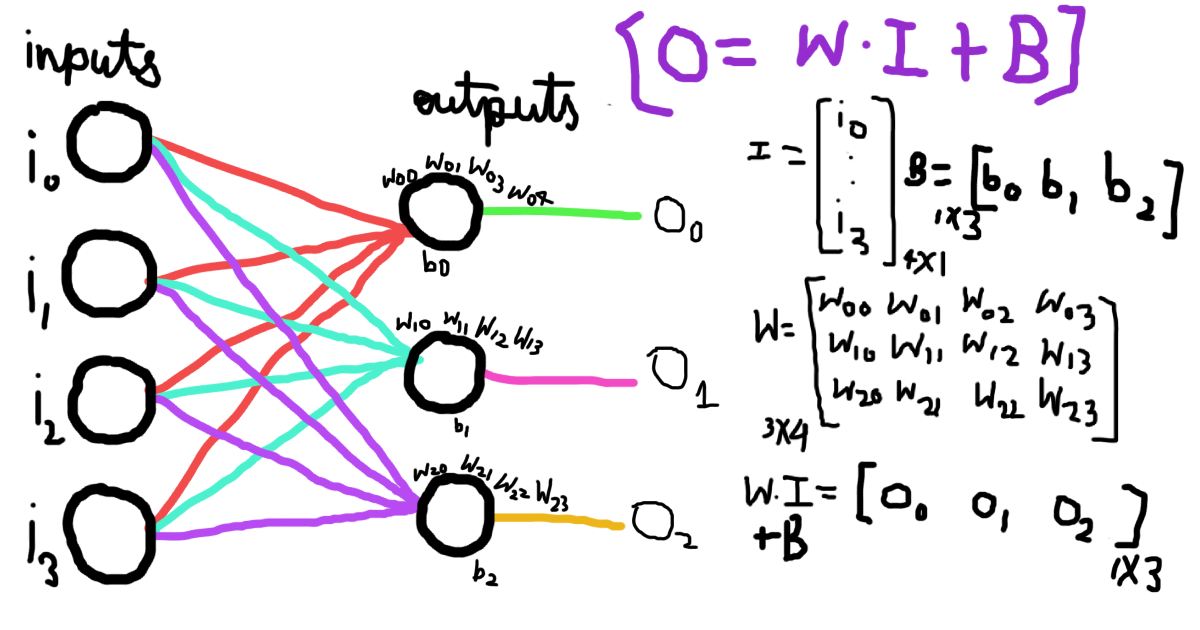 inputs
i0
i1
i2
i3
outputs
w00 w01 w03 w04
b0
O0
w10 w11 w12 w13
b1
O1
w20 w21 w22 w23
b2
O2
[O = W·I + B]
I = [i0 . . . i3] 4x1
B = [b0 b1 b2] 1x3
W = [w00 w01 w02 w03
w10 w11 w12 w13
w20 w21 w22 w23] 3x4
W·I + B = [O0 O1 O2] 1x3